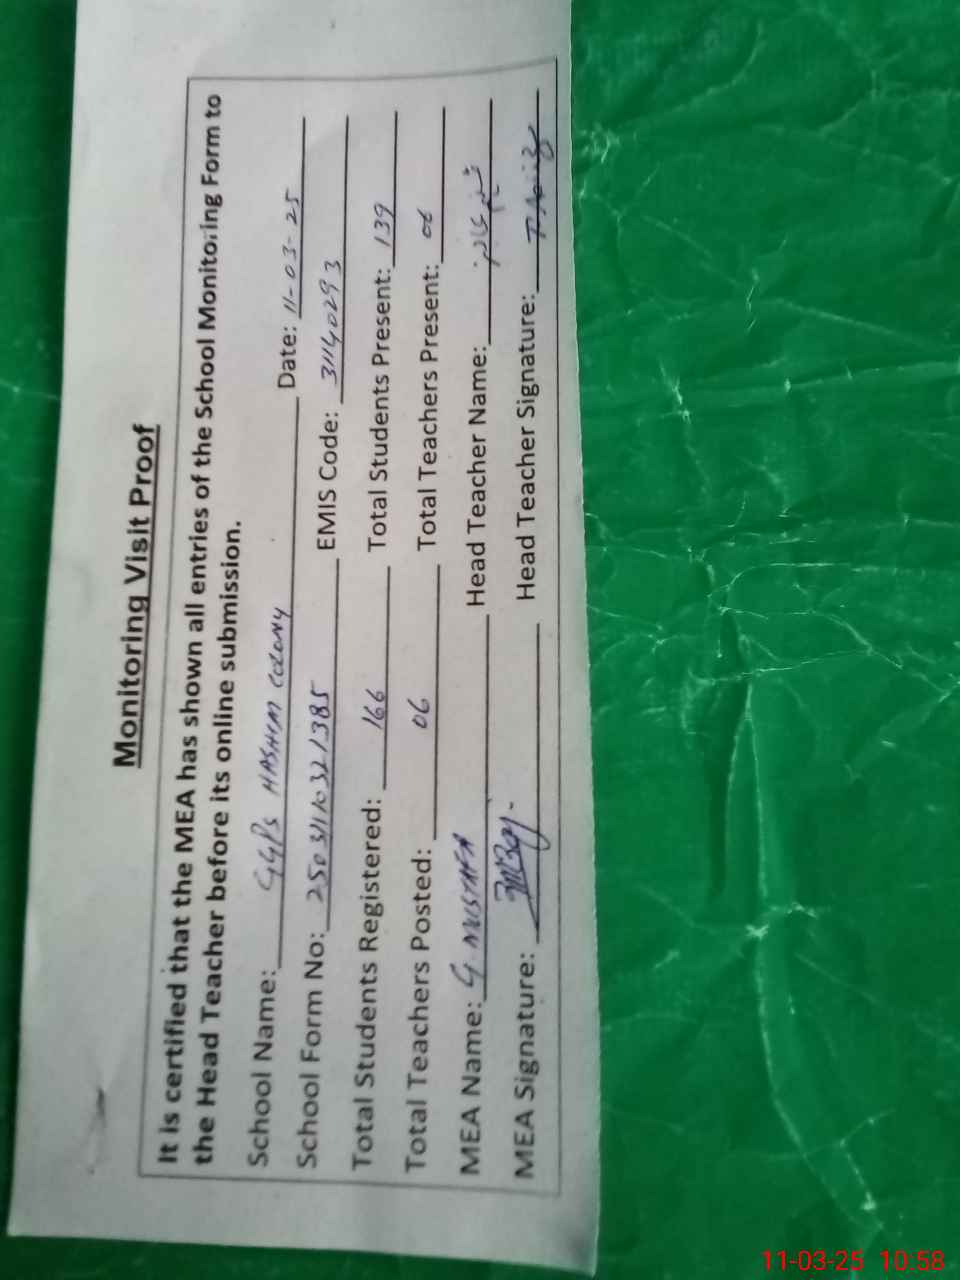 Monitoring Visit Proof
It is certified that the MEA has shown all entries of the School Monitoring Form to
the Head Teacher before its online submission.
School Name: GGPS HASHIM COLONY Date: 11-03-25
School Form No: 25031110321385 EMIS Code: 31140293
Total Students Registered: 166 Total Students Present: 139
Total Teachers Posted: 06 Total Teachers Present: 06
MEA Name: G. MUSTAFA Head Teacher Name:
MEA Signature: Head Teacher Signature:
11-03-25 10:58